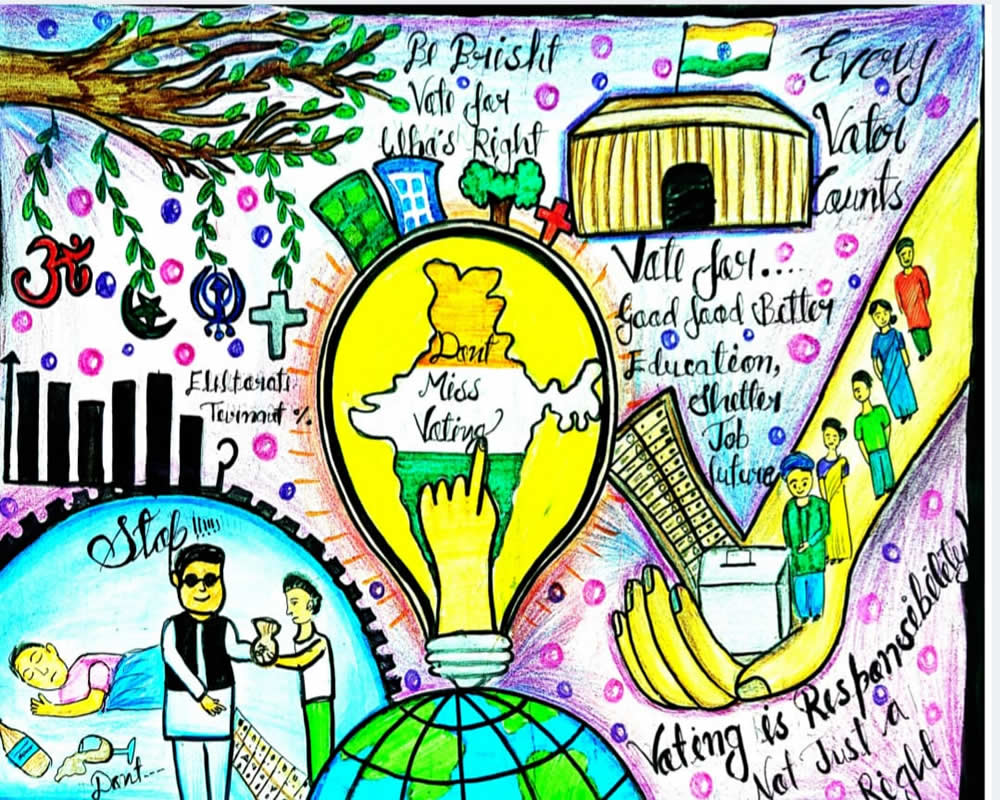 Be Brisht
Vate for
Wha's Right
Every
Vator
Counts
Vate for....
Good food Better
Education,
Shelter
Job
future
Dont
Miss
Vating
%
?
Stop!!!!!
Dont---
Vating is Responsebility
Not Just a
Right